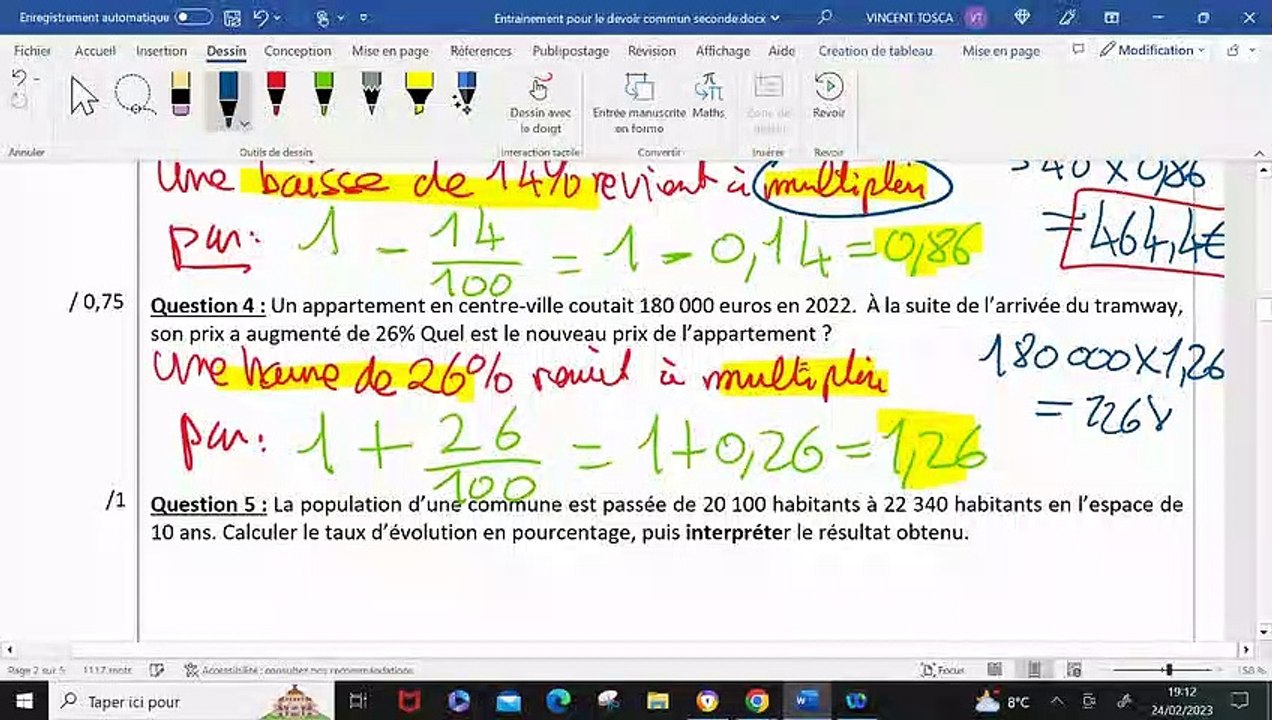 Enregistrement automatique
Entrainement pour le devoir commun seconde.docx
VINCENT TOSCA
VT
Fichier Accueil Insertion Dessin Conception Mise en page Références Publipostage Révision Affichage Aide Création de tableau Mise en page Modification
Dessin avec le doigt
Entrée manuscrite en forme
Maths
Zone de dessin
Revoir
Annuler Outils de dessin Interaction tactile Convertir Insérer Revoir
Une baisse de 14% revient à multiplier
540 X 0,86
par: 1 - 14/100 = 1 - 0,14 = 0,86
= 464,4€
/ 0,75
Question 4 : Un appartement en centre-ville coutait 180 000 euros en 2022. À la suite de l'arrivée du tramway,
son prix a augmenté de 26% Quel est le nouveau prix de l'appartement ?
Une hausse de 26% revient à multiplier
180 000 X 1,26
= 2268
par: 1 + 26/100 = 1+0,26 = 1,26
/1
Question 5 : La population d'une commune est passée de 20 100 habitants à 22 340 habitants en l'espace de
10 ans. Calculer le taux d'évolution en pourcentage, puis interpréter le résultat obtenu.
Page 2 sur 5 1117 mots Accessibilité : consultez nos recommandations Focus 158 %
Taper ici pour
8°C
19:12
24/02/2023